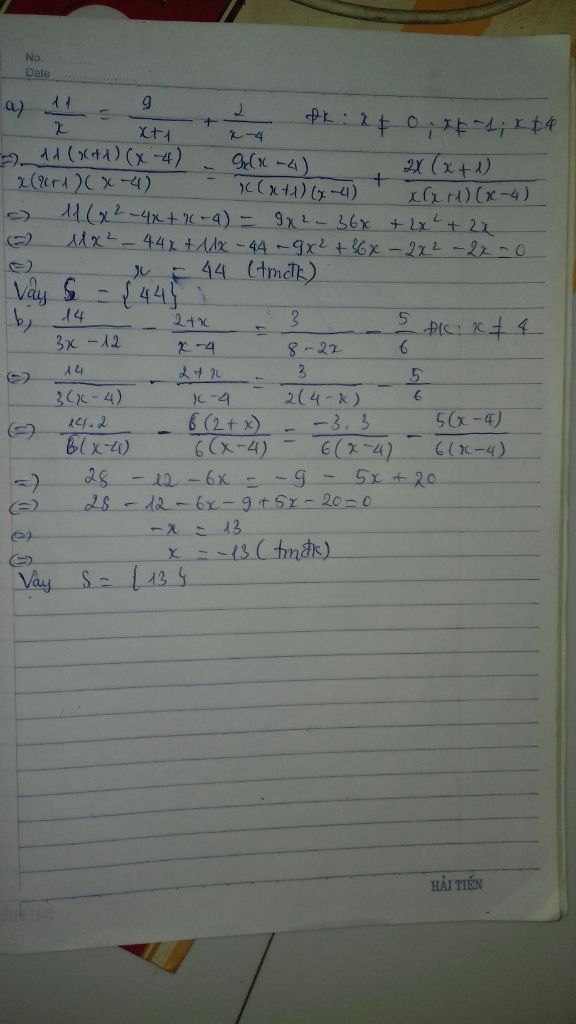 No.
Date
a) 11/x = 9/(x+1) + 2/(x-4) ĐK: x ≠ 0; x ≠ -1; x ≠ 4
=> 11(x+1)(x-4)/x(x+1)(x-4) = 9x(x-4)/x(x+1)(x-4) + 2x(x+1)/x(x+1)(x-4)
=> 11(x² - 4x + x - 4) = 9x² - 36x + 2x² + 2x
<=> 11x² - 44x + 11x - 44 - 9x² + 36x - 2x² - 2x = 0
<=> x = 44 (tmđk)
Vậy S = {44}
b, 14/(3x-12) - (2+x)/(x-4) = 3/(8-2x) - 5/6 ĐK: x ≠ 4
<=> 14/3(x-4) - (2+x)/(x-4) = 3/2(4-x) - 5/6
<=> 14.2/6(x-4) - 6(2+x)/6(x-4) = -3.3/6(x-4) - 5(x-4)/6(x-4)
=> 28 - 12 - 6x = -9 - 5x + 20
<=> 28 - 12 - 6x - 9 + 5x - 20 = 0
<=> -x = 13
<=> x = -13 (tmđk)
Vậy S = {13}
HẢI TIẾN